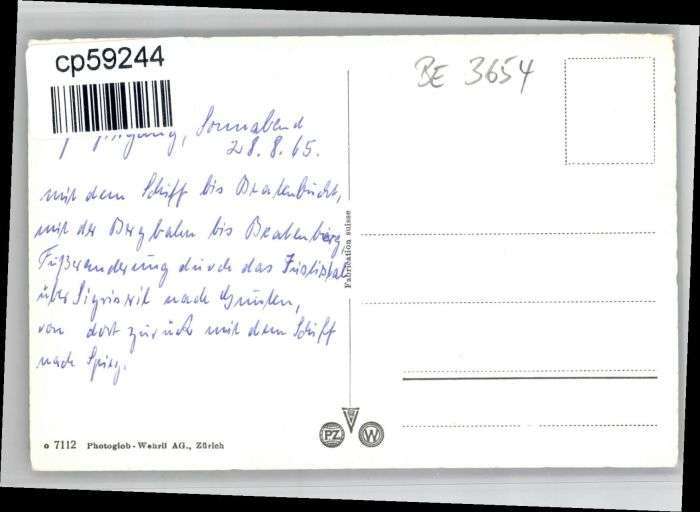 cp59244
BE 3654
, Sonnabend
28.8.65.
mit dem Schiff bis Beatenbucht,
mit der Bergbahn bis Beatenberg
Fußwanderung durch das Justistal
über Sigriswil nach Gunten,
von dort zurück mit dem Schiff
nach Spiez.
Fabrication suisse
PZ W
o 7112 Photoglob-Wehrli AG., Zürich